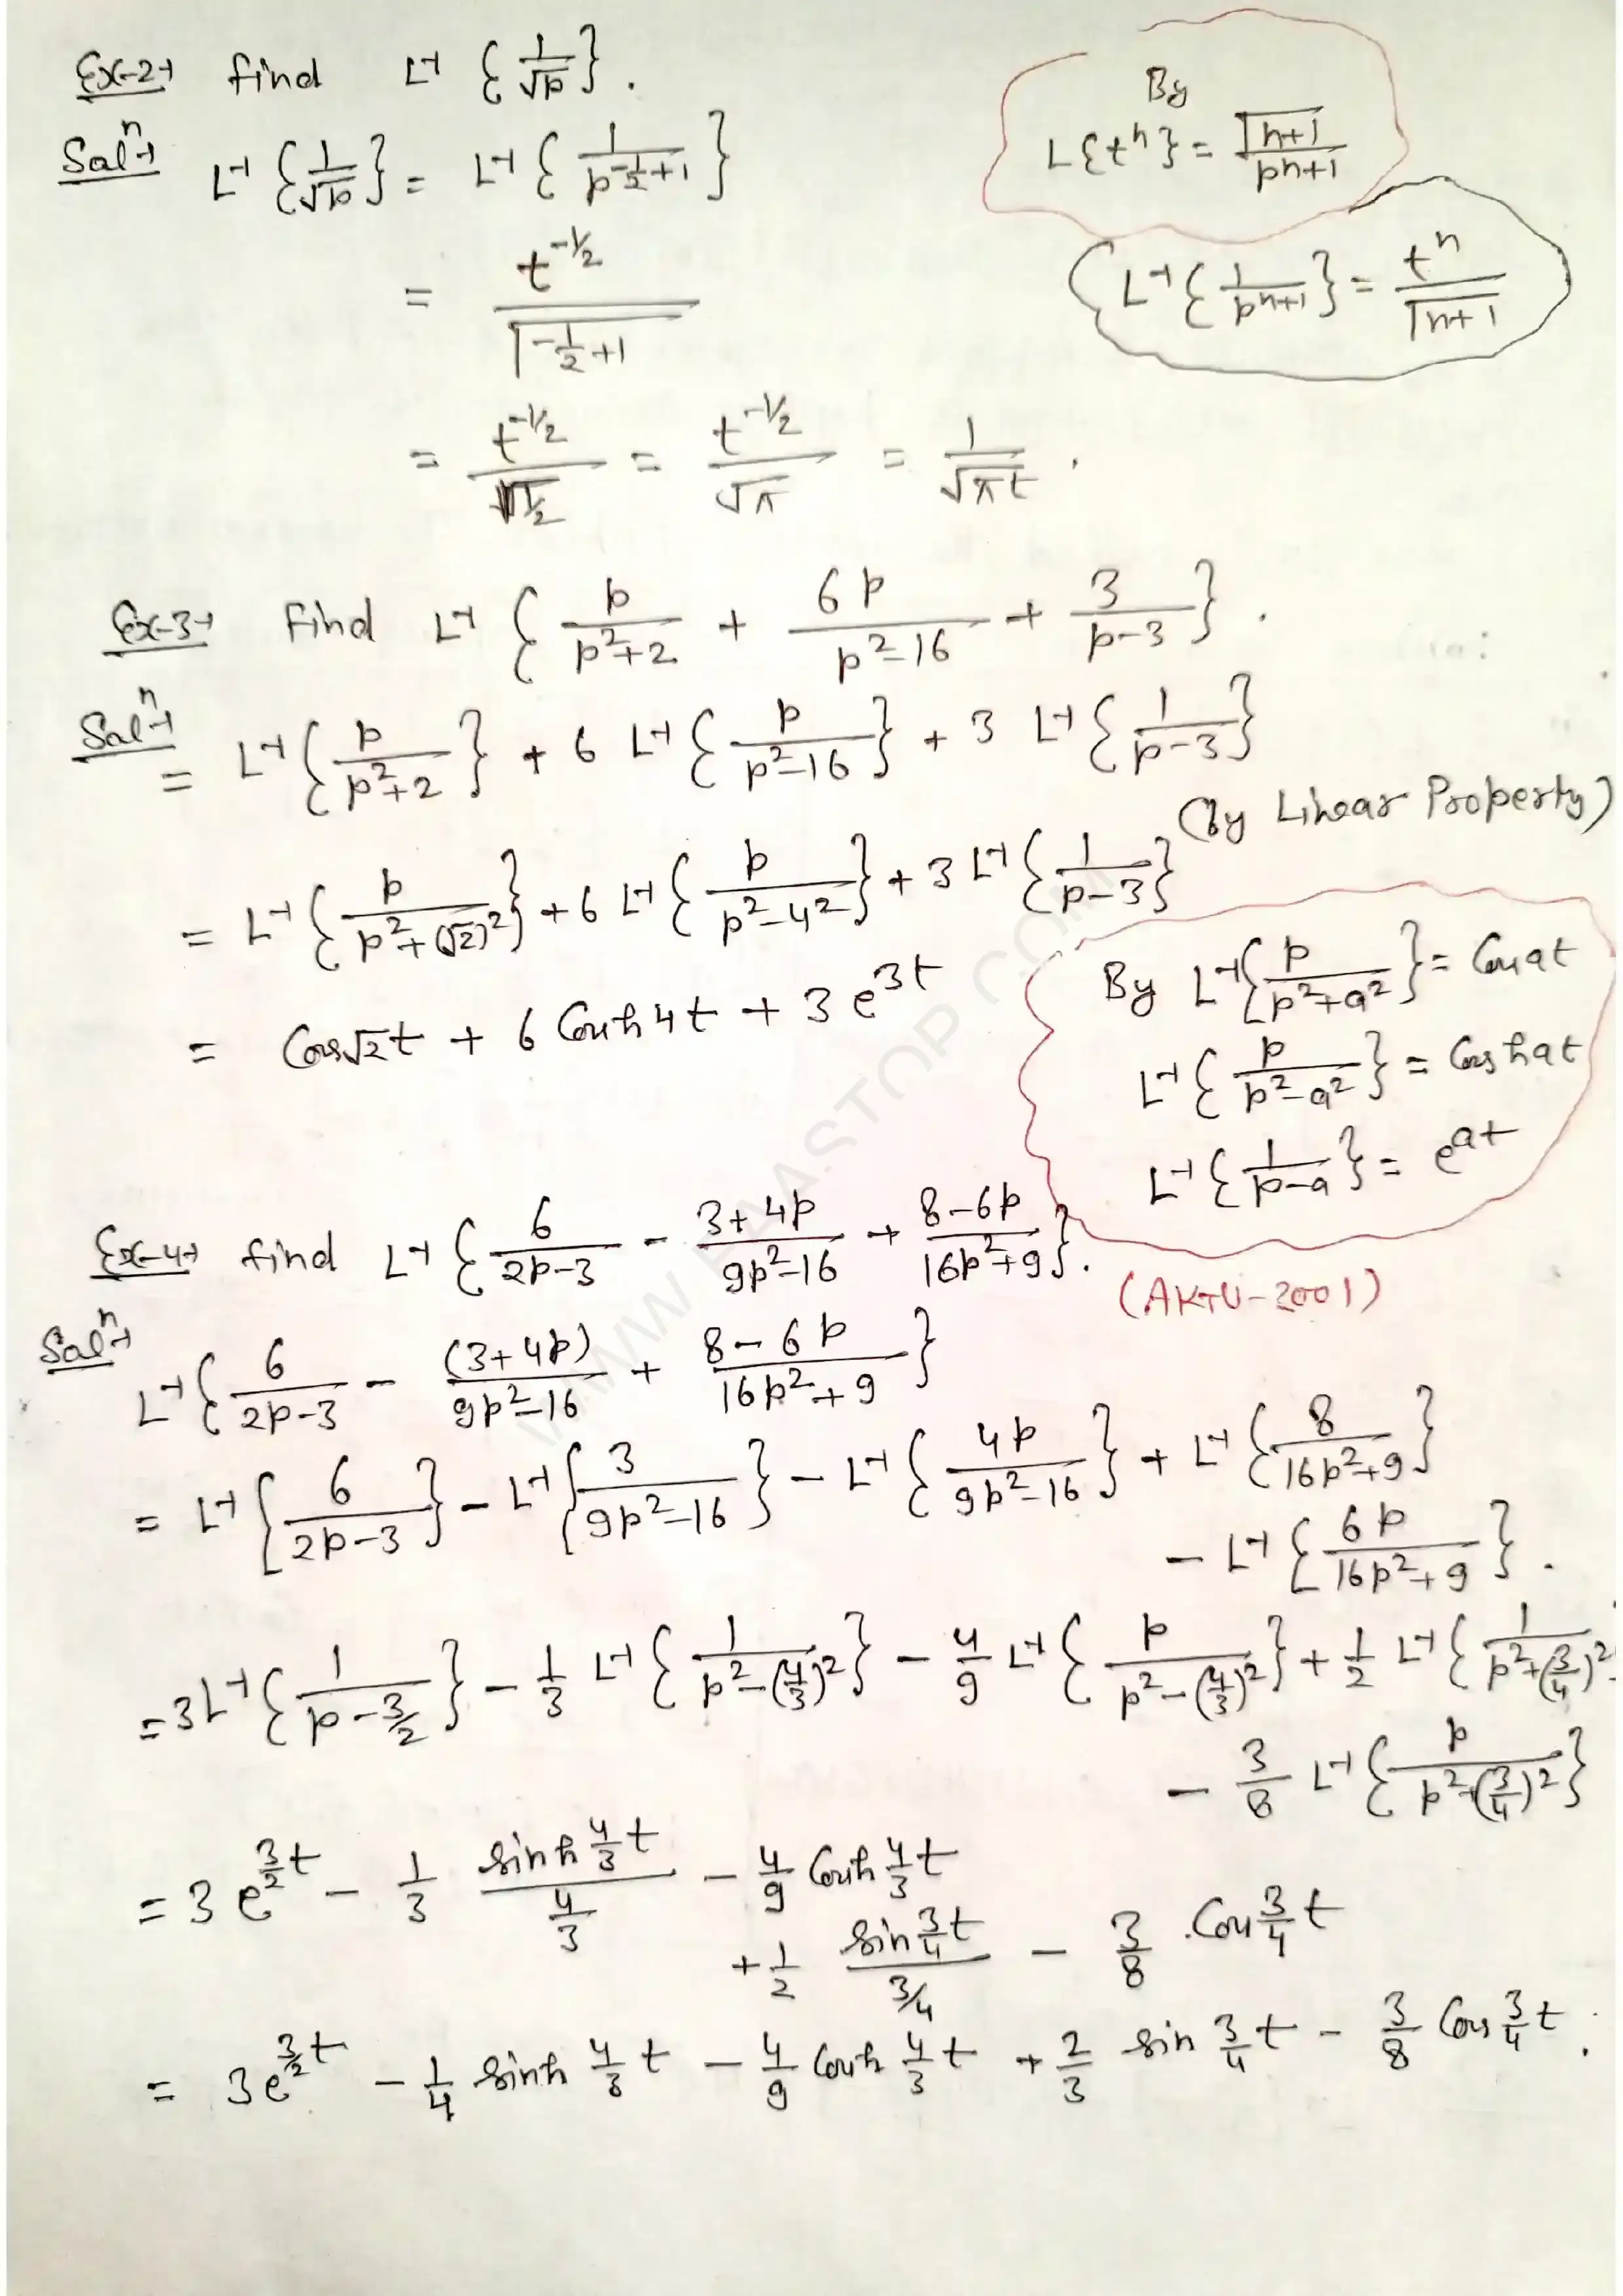 Ex-2→ find L⁻¹ {1/√p}.
By
Solⁿ→ L⁻¹ {1/√p} = L⁻¹ {1/p^(-1/2+1)}
L{tⁿ} = Γn+1/pⁿ⁺¹
= t^(-1/2)/Γ-1/2+1
L⁻¹ {1/pⁿ⁺¹} = tⁿ/Γn+1
= t^(-1/2)/Γ1/2 = t^(-1/2)/√π = 1/√πt .
Ex-3→ Find L⁻¹ {p/p²+2 + 6p/p²-16 + 3/p-3} .
Solⁿ→
= L⁻¹{p/p²+2} + 6 L⁻¹{p/p²-16} + 3 L⁻¹{1/p-3}
(By Linear Property)
= L⁻¹{p/p²+(√2)²} + 6 L⁻¹{p/p²-4²} + 3 L⁻¹{1/p-3}
By L⁻¹{p/p²+a²} = Cos at
= Cos√2t + 6 Cosh4t + 3 e^3t
L⁻¹{p/p²-a²} = Cos hat
L⁻¹{1/p-a} = e^at
Ex-4→ find L⁻¹ {6/2p-3 - 3+4p/9p²-16 + 8-6p/16p²+9}.
(AKTU-2001)
Solⁿ→
L⁻¹{6/2p-3 - (3+4p)/9p²-16 + 8-6p/16p²+9}
= L⁻¹{6/2p-3} - L⁻¹{3/9p²-16} - L⁻¹{4p/9p²-16} + L⁻¹{8/16p²+9}
- L⁻¹{6p/16p²+9} .
= 3L⁻¹{1/p-3/2} - 1/3 L⁻¹{1/p²-(4/3)²} - 4/9 L⁻¹{p/p²-(4/3)²} + 1/2 L⁻¹{1/p²+(3/4)²
- 3/8 L⁻¹{p/p²+(3/4)²}
= 3 e^(3/2 t) - 1/3 sinh 4/3 t/4/3 - 4/9 Cosh 4/3 t
+ 1/2 sin 3/4 t/3/4 - 3/8 .Cos 3/4 t
= 3e^(3/2 t) - 1/4 sinh 4/3 t - 4/9 Cosh 4/3 t + 2/3 sin 3/4 t - 3/8 Cos 3/4 t .